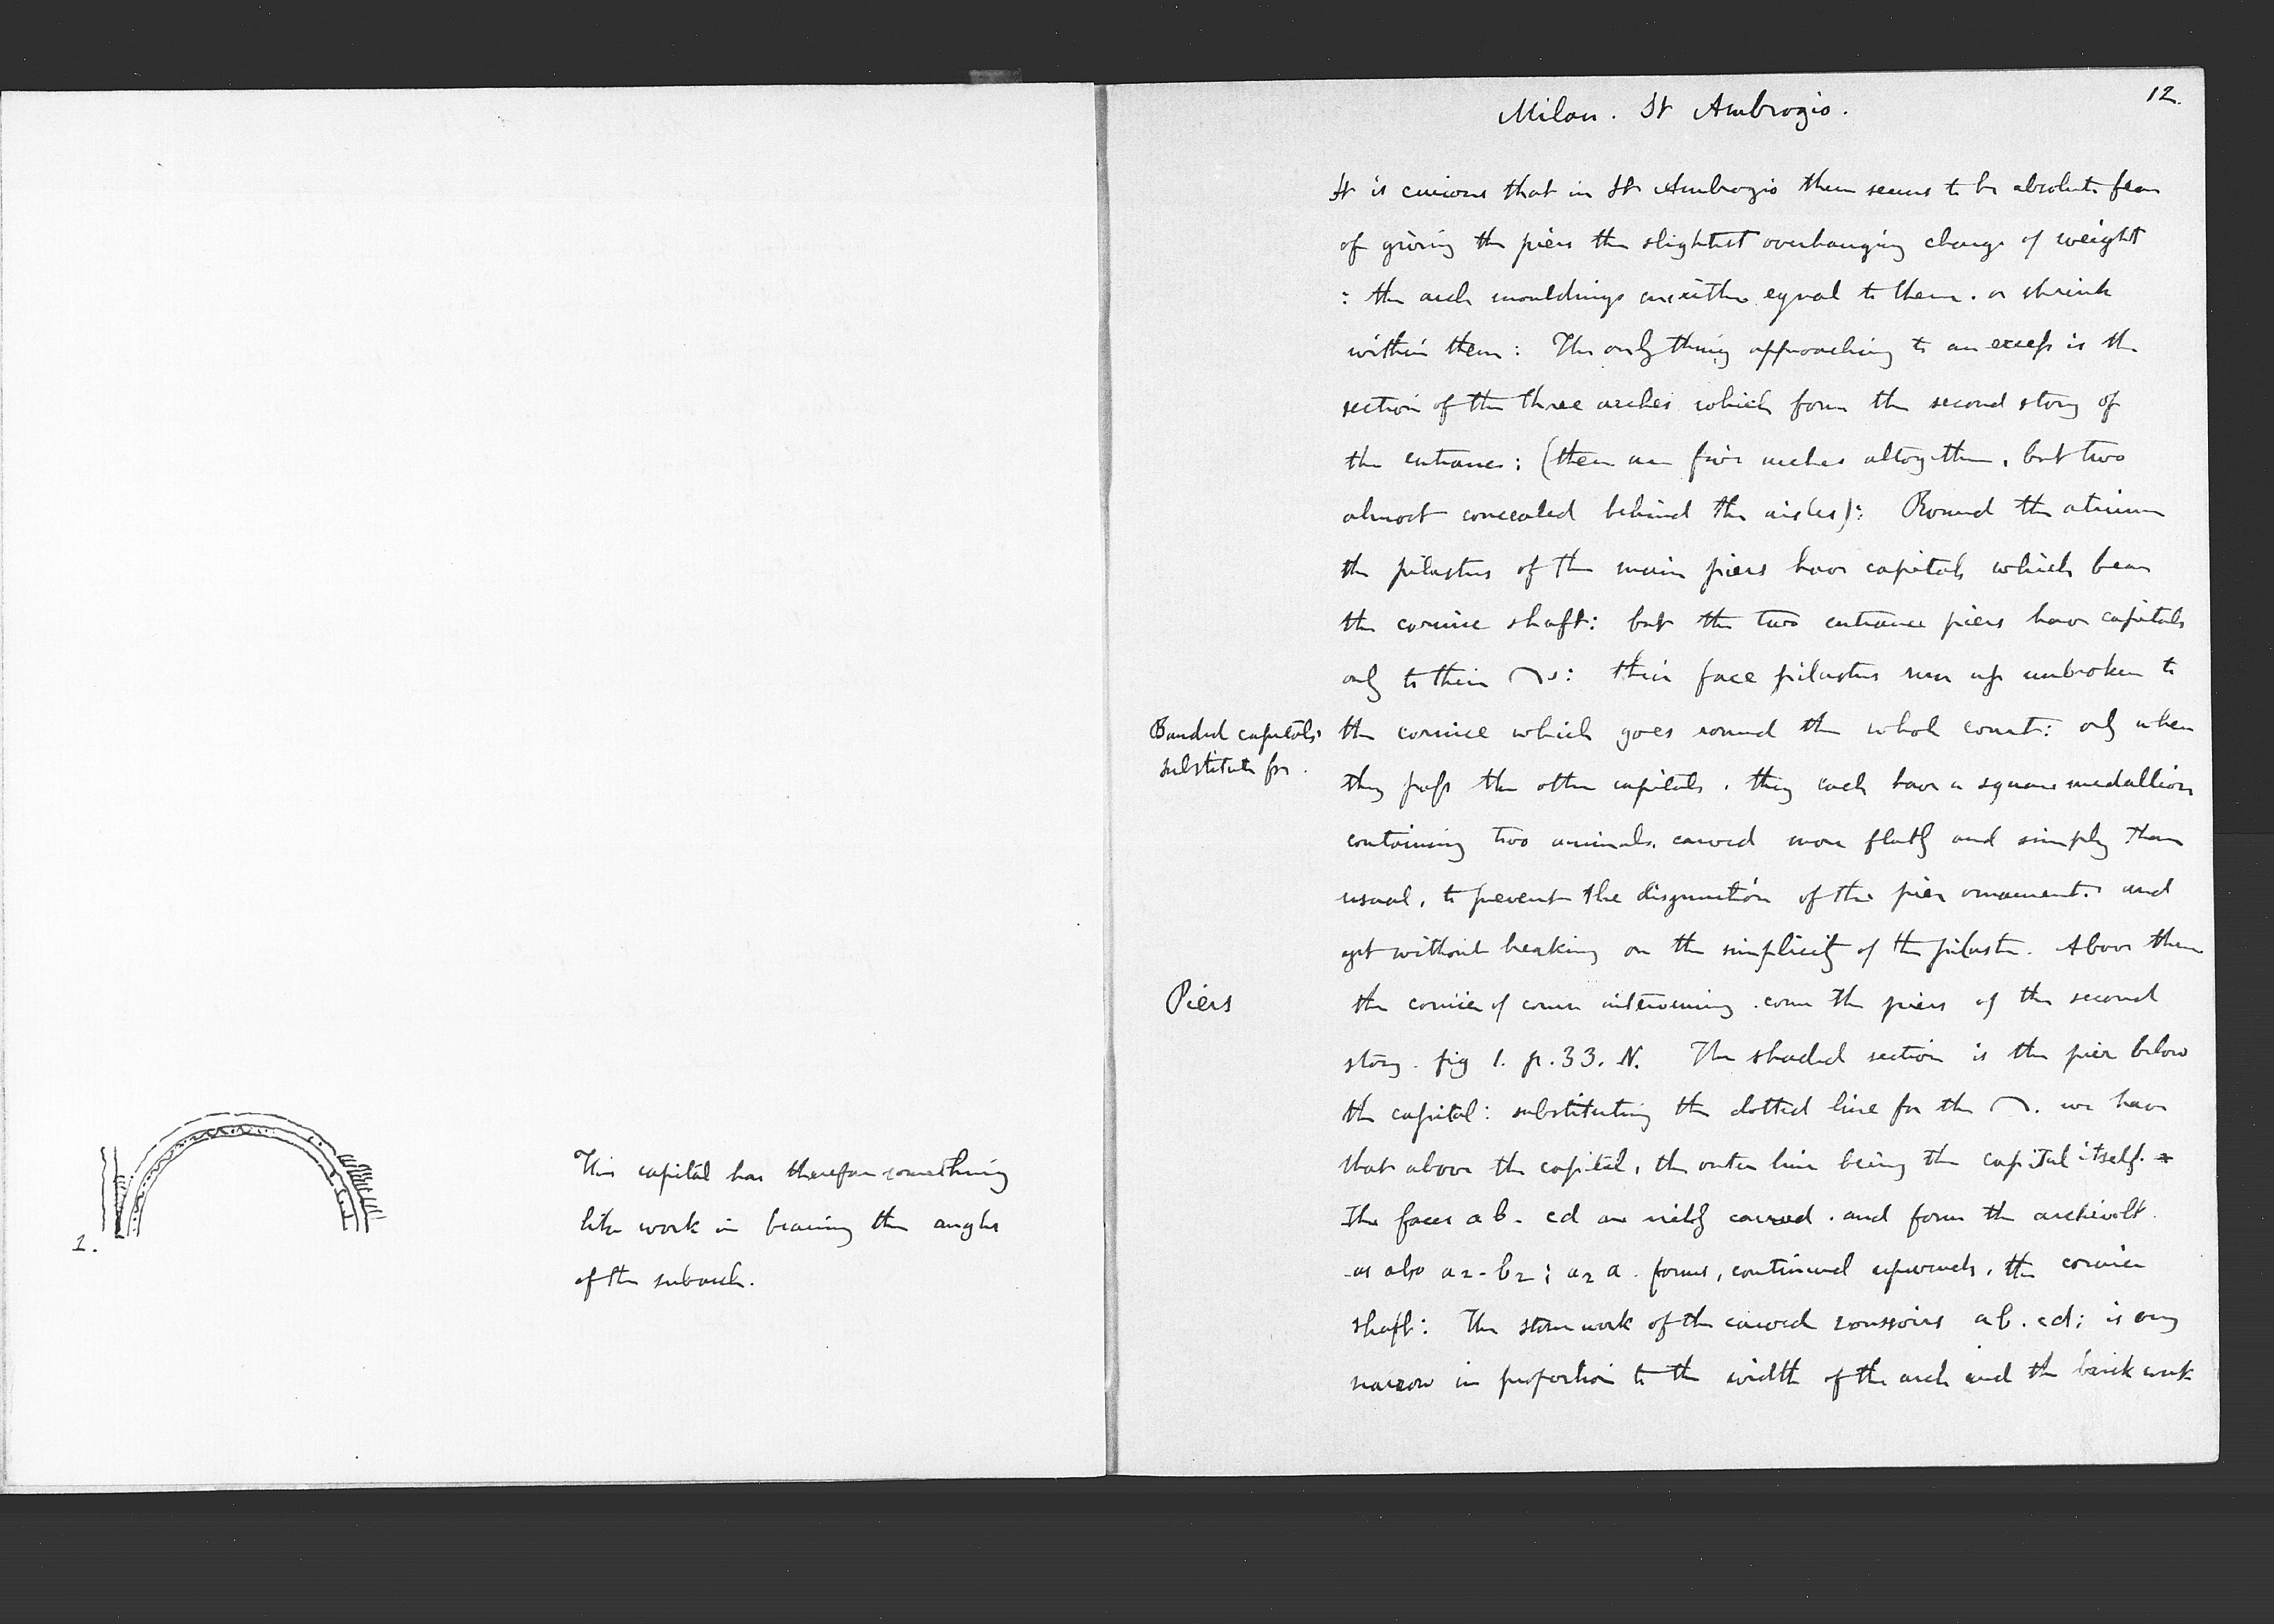 1.
This capital has therefore something
like work in bearing the angles
of the subarch.
12.
Milan. St Ambrogio.
It is curious that in St Ambrogio there seems to be absolute fear
of giving the piers the slightest overhanging charge of weight
: the arch mouldings are either equal to them. or shrink
within them: The only thing approaching to an excess is the
section of the three arches which form the second story of
the entrance: (there are five arches altogether, but two
almost concealed behind the aisles): Round the atrium
the pilasters of the main piers have capitals which bear
the cornice shaft: but the two entrance piers have capitals
only to their ⌒s: their face pilasters run up unbroken to
Banded capitals
substitute for.
the cornice which goes round the whole court: only when
they pass the other capitals, they each have a square medallion
containing two animals. carved more flatly and simply than
usual, to prevent the disjunction of the pier ornament. and
yet without breaking on the simplicity of the pilaster. Above them
Piers
the cornice of course intervening. come the piers of the second
story. fig 1. p. 33. N. The shaded section is the pier below
the capital: substituting the dotted line for the ⌒. we have
that above the capital, the outer line being the capital itself. x
The faces a b. cd are richly carved. and form the archivolt.
as also a2 - b2; a2 a. forms, continued upwards, the cornice
shaft: The stone work of the carved voussoirs ab. cd; is very
narrow in proportion to the width of the arch and the brick work